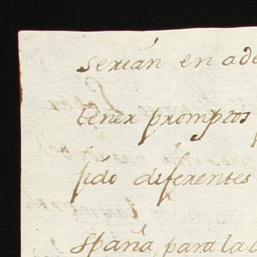 serián en ade
tener promptos
sído diferentes
spaña, para la c